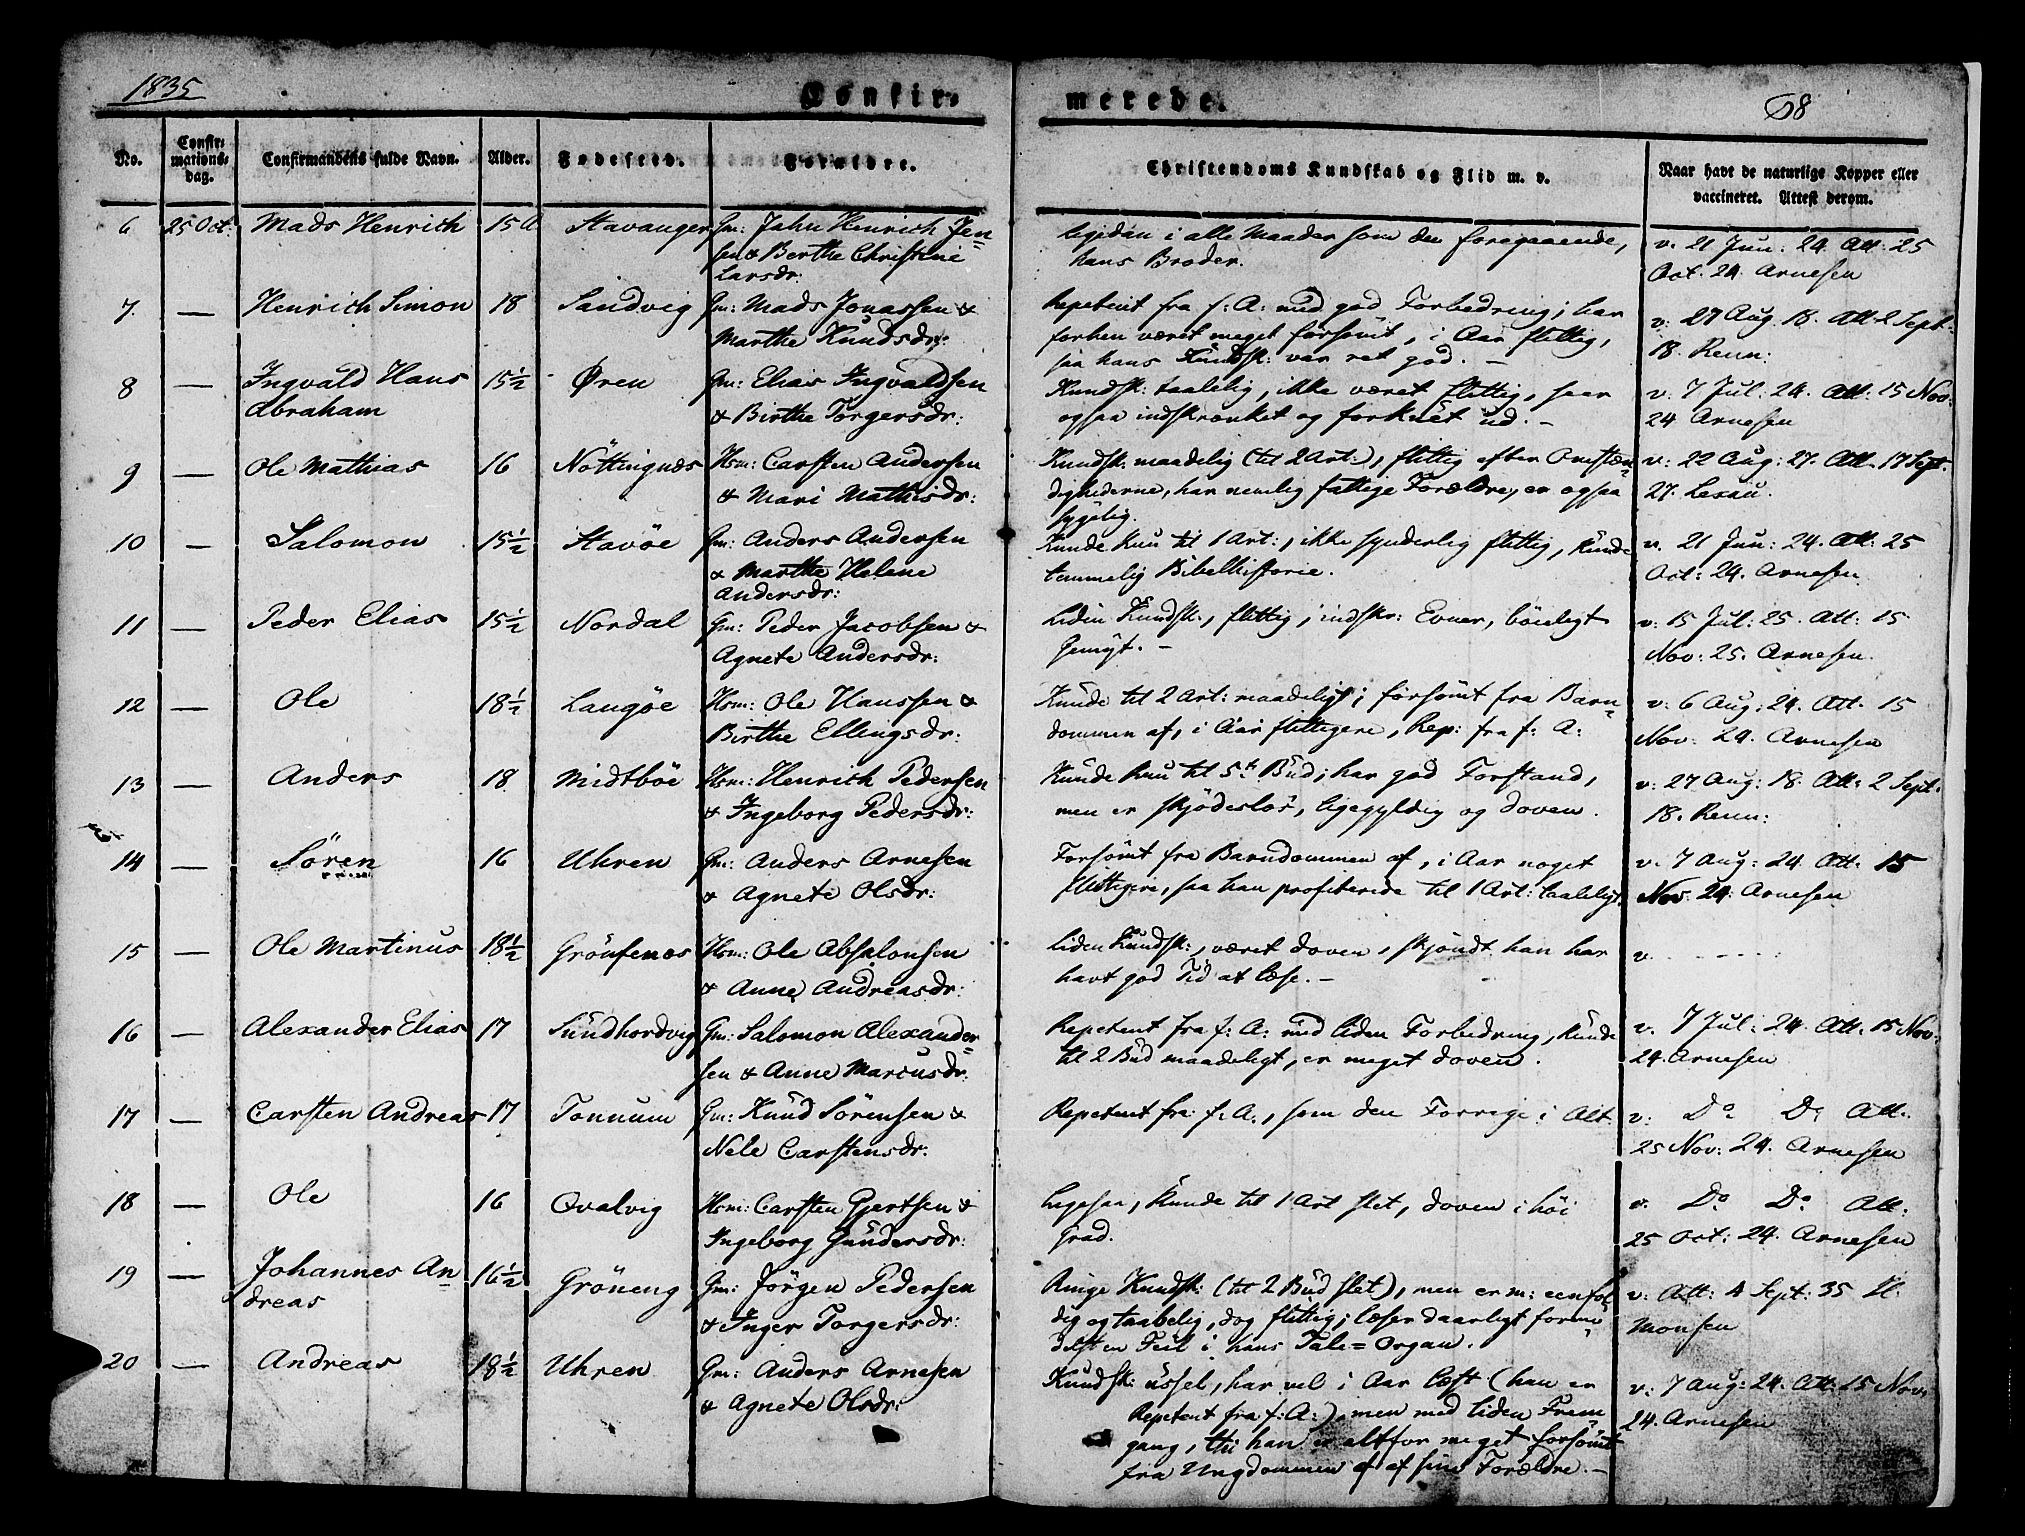 1835
Confir-
merede.
68
No.
Confir-
mations-
dag.
Confirmandens fulde Navn.
Alder.
Fødested.
Forældre.
Christendoms Kundskab og Flid m. v.
Naar havt de naturlige Kopper eller
vaccineret. Attest derom.
6 25 Oct: Mads Henrich 15 A Stavanger Gm: Jahn Henrich Jen=
sen & Berthe Christine
Larsdr:
ligedan i alle Maader som den foregaaende,
hans Broder.
v. 21 Jun: 24. Att: 25
Oct. 24. Arnesen
7. — Henrich Simon 18 Sandvig Gm: Mads Jonassen &
Marthe Knudsdr:
Repetent fra f: A: med god Forbedring; har
forhen været meget forsömt, i Aar flittig,
saa hans Kundsk: var ret god. —
v: 27 Aug: 18. Att: 2 Sept:
18. Renn:
8 — Ingvald Hans 15½ Øren Gm: Elias Ingvaldsen
Abraham
& Birthe Torgersdr:
Kundsk: taalelig, ikke været flittig, saa
ogsaa indskrænket og forknöt ud. —
v. 7 Jul: 24. Att: 15 Nov:
24 Arnesen
9 — Ole Mathias 16 Nöttingnæs Hsm: Carsten Andersen
& Mari Mathisdr:
Kundsk: maadelig (til 2 Art:), flittig efter Omstæn=
dighederne, har nemlig fattige Forældre, er ogsaa
sygelig.
v: 22 Aug: 27. Att. 17 Sept.
27. Lexau.
10 — Salomon 15½ Stavöe Gm: Anders Andersen
& Marthe Helene
Andersdr:
Kunde kun til 1 Art:, ikke synderlig flittig, kunde
temmelig Bibelhistorie.
v. 21 Jun: 24. Att: 25
Oct: 24. Arnesen
11 — Peder Elias 15½ Nordal Gm: Peder Jacobsen &
Agnete Andersdr:
Liden Kundsk:, flittig, indskr: Evner, böieligt
Gemyt. —
v: 15 Jul: 25. Att: 15
Nov: 25. Arnesen.
12 — Ole 18½ Langöe Hsm: Ole Hanssen &
Birthe Ellingsdr:
Kunde til 2 Art: maadeligt; forsömt fra Barn=
dommen af, i Aar flittigere, Rep: fra f: A:
v. 6 Aug: 24. Att. 15
Nov: 24. Arnesen
13 — Anders 18 Midtböe Hsm: Henrich Pedersen
& Ingeborg Pedersdr:
Kunde kun til 5t Bud; har god Forstand,
men er skjödeslös, ligegyldig og doven.
v: 27 Aug: 18. Att: 2 Sept:
18. Renn:
14 — Sören 16 Uhren Gm: Anders Arnesen
& Agnete Olsdr:
Forsömt fra Barndommen af, i Aar noget
flittigere, saa han profiterede til 1 Art: taaleligt.
v. 7 Aug: 24. Att: 15
Nov: 24. Arnesen
15 — Ole Martinus 18½ Grönsenæs Hsm: Ole Absalonsen
& Anne Andreasdr:
Liden Kundsk:, været doven, skjöndt han har
havt god Tid at læse. —
v. - - - - -
16 — Alexander Elias 17 Sundhordvig Gm: Salomon Alexander=
sen & Anne Marcusdr.
Repetent fra f: A: med liden Forbedring, kunde
til 2 Bud maadeligt, er meget doven.
v. 7 Jul: 24 Att: 15 Nov:
24. Arnesen
17 — Carsten Andreas 17 Tonnum Gm: Knud Sörensen &
Nele Carstensdr:
Repetent fra f: A:, som den Forrige i Alt.
v: Do Do Att.
25 Nov: 24. Arnesen
18 — Ole 16 Qvalvig Hsm: Carsten Gjertsen &
Ingeborg Gundersdr:
Ligesaa, kunde til 1 Art slet, doven i höi
Grad.
v. Do Do Att.
25 Oct: 24. Arnesen
19 — Johannes An= 16½ Gröneng Gm: Jörgen Pedersen
dreas
& Inger Torgersdr:
Ringe Kundsk: (til 2 Bud slet), men er m: eenfol=
dig og taabelig, dog flittig; læser daarligt forme=
delst en Feil i hans Tale=Organ.
v: Att: 4 Sept: 35 H.
Monsen
20 — Andreas 18½ Uhren Gm: Anders Arnesen
& Agnete Olsdr:
Kundsk: ussel, har vel i Aar læst (han er
Repetent fra f: A:), men med liden Frem
gang, thi han er altfor meget forsömt
fra Ungdommen af af sine Forældre. —
v: 7 Aug: 24. Att: 15 Nov:
24. Arnesen